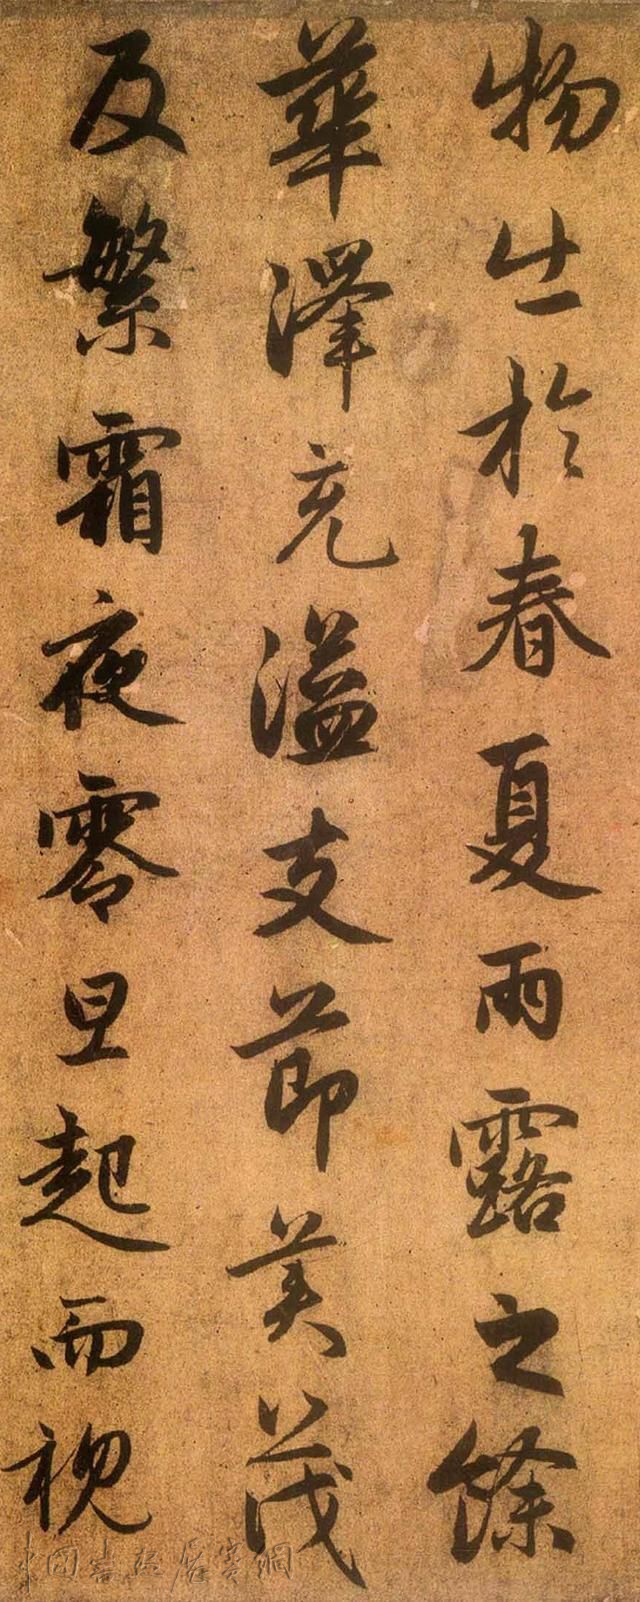 物生於春夏雨露之餘
華澤充溢支節美茂
及繁霜夜零旦起而視
中國書法展賽網